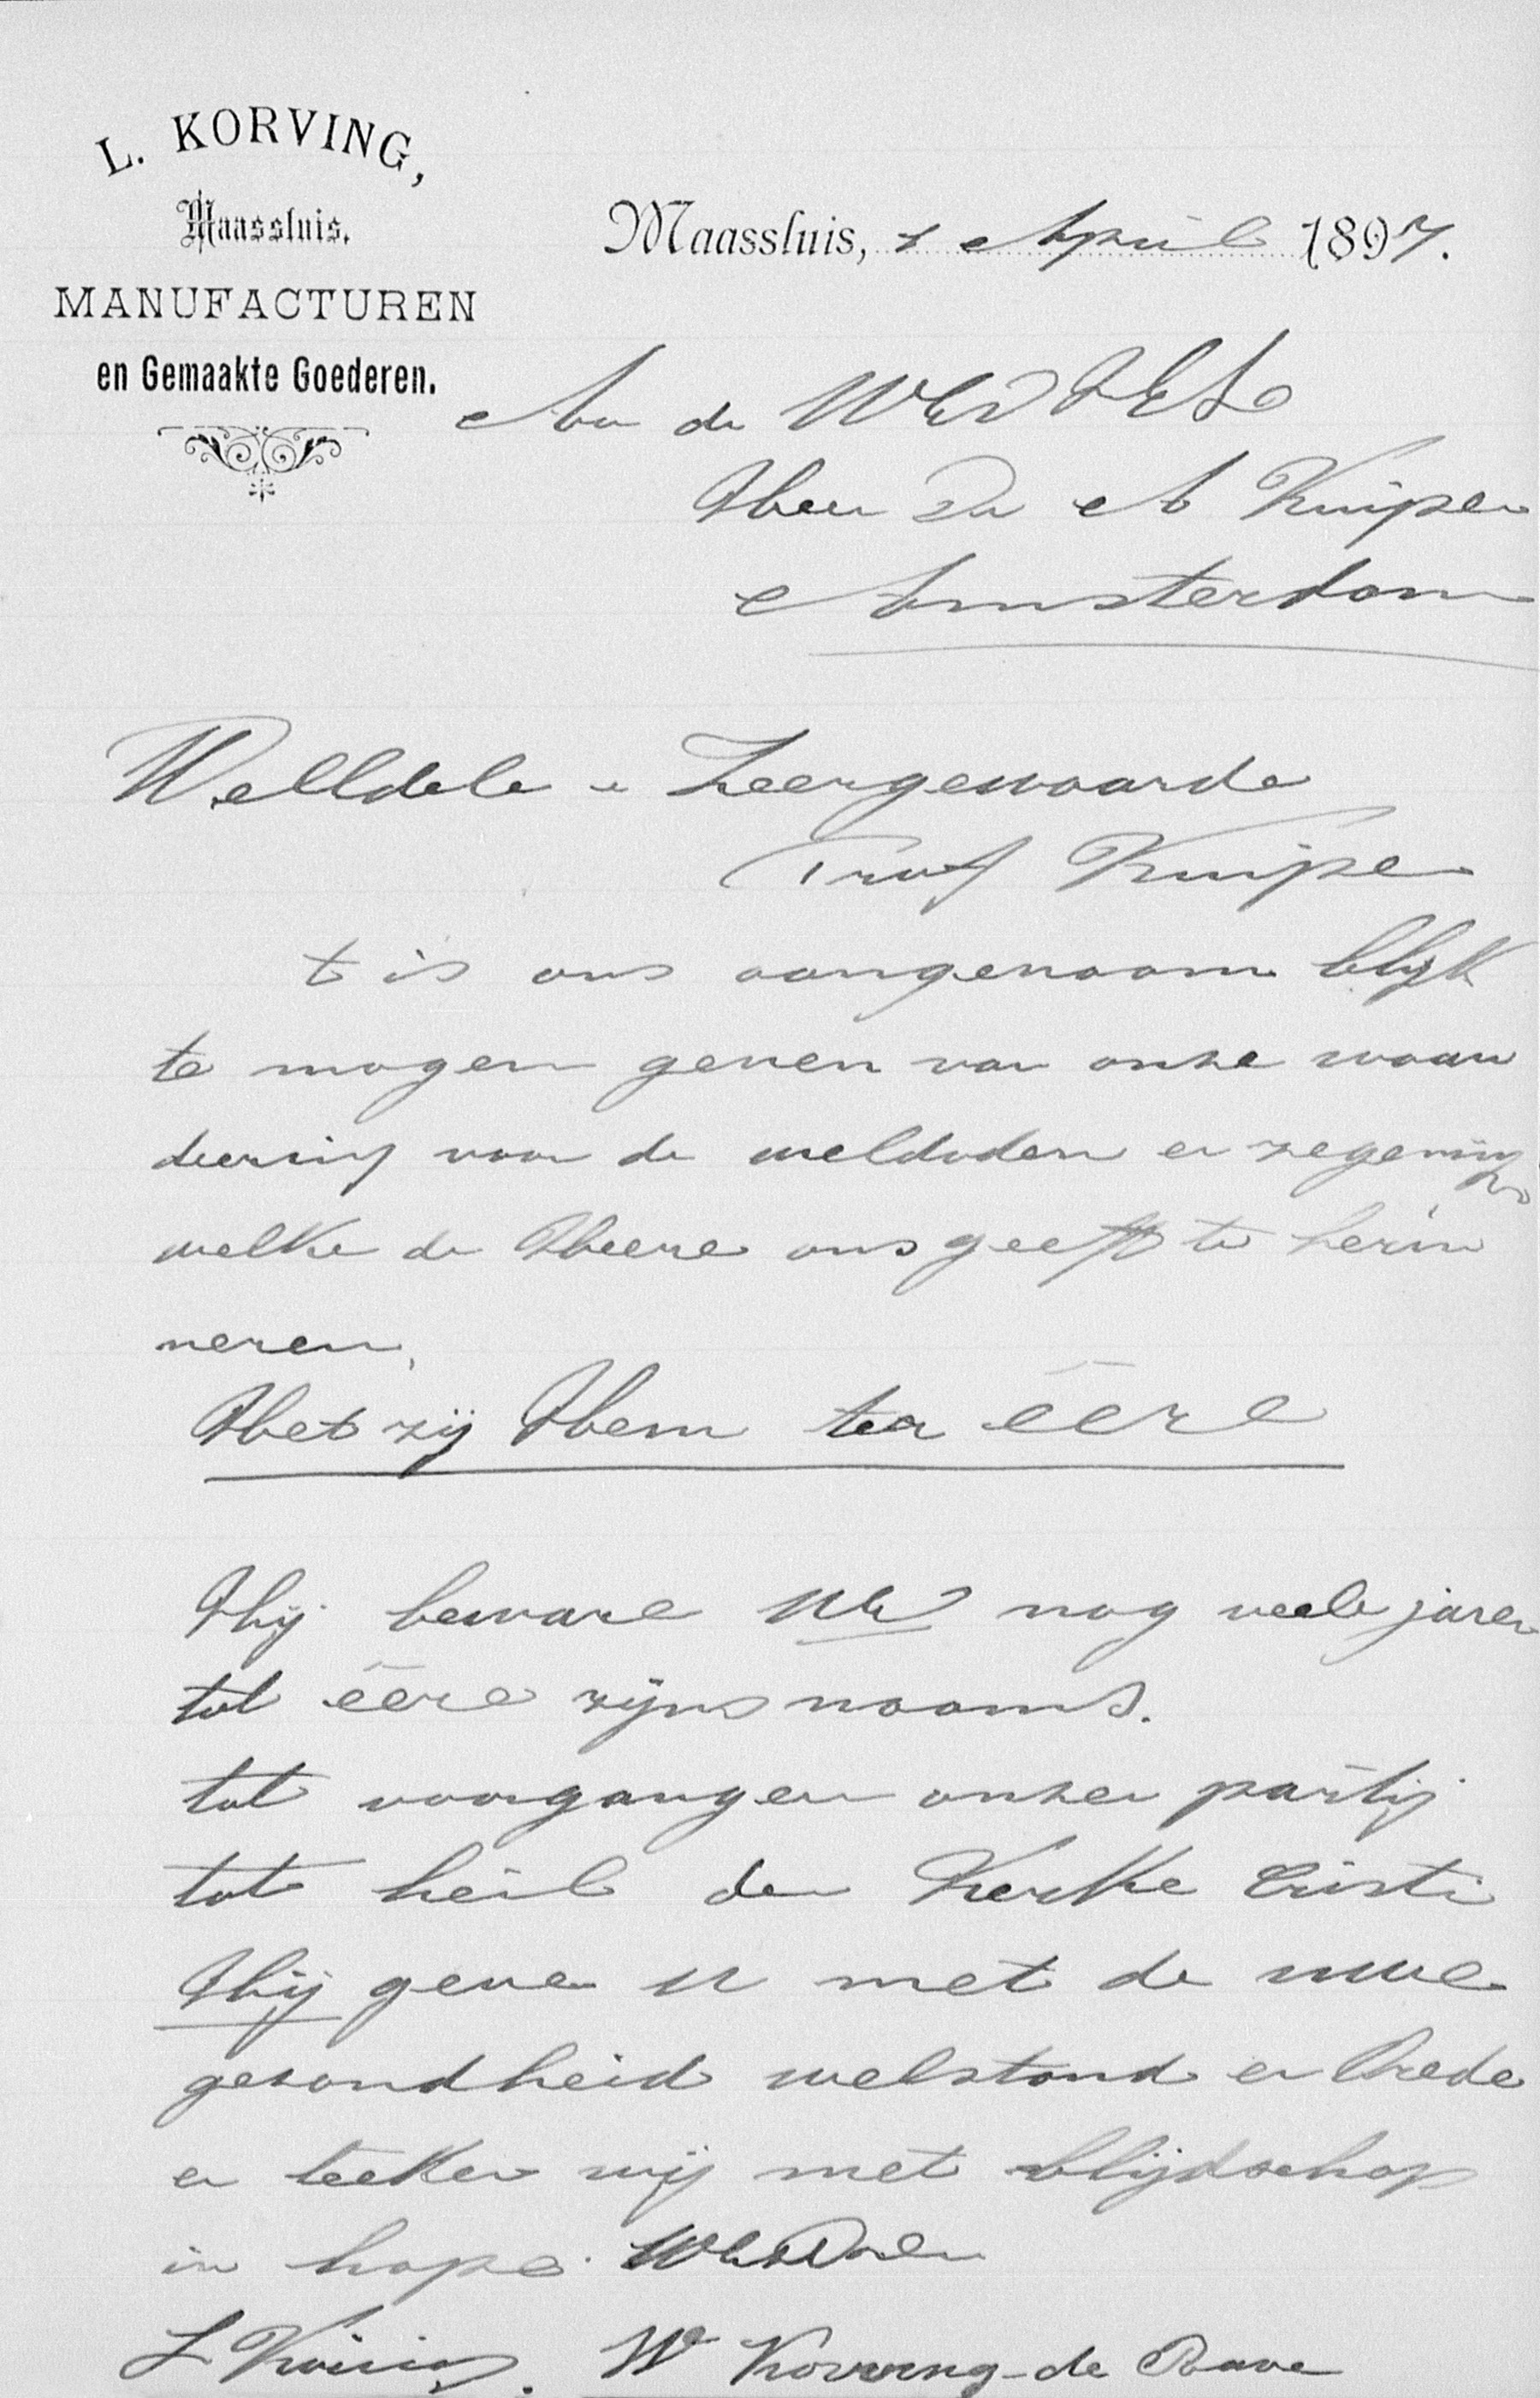 L. KORVING,
Maassluis.
MANUFACTUREN
en Gemaakte Goederen.
Maassluis, 1 April 1897.
Aan de
Heer Dr A Kuiper
Amsterdam
WelEdele Zeergewaarde
Prof Kuiper
t is ons aangenaam blijk
te mogen geven van onze waar
deering voor de weldaden en zegening
welke de Heere ons geeft te herin
neren.
Het zij Hem ter eere
Hij beware UEd nog veele jaren
tot eere zijns naams.
tot voorganger onzer partij
tot heil der Kerke Cristi
Hij geve U met de uwe
gezondheid welstand en vrede
en teeken wij met blijdschap
in hope
L Korving. W Korving-de Raave